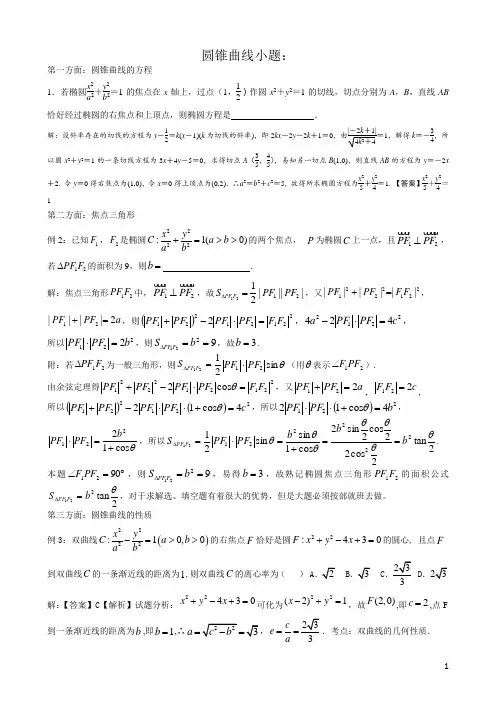 圆锥曲线小题：
第一方面：圆锥曲线的方程
1．若椭圆x²/a²＋y²/b²＝1 的焦点在 x 轴上，过点（1，1/2）作圆 x²＋y²＝1 的切线，切点分别为 A，B，直线 AB
恰好经过椭圆的右焦点和上顶点，则椭圆方程是 ．
解：设斜率存在的切线的方程为 y－1/2＝k(x－1)(k 为切线的斜率)，即 2kx－2y－2k＋1＝0，由|－2k＋1|/√(4k²＋4)＝1，解得 k＝－3/4，所
以圆 x²＋y²＝1 的一条切线方程为 3x＋4y－5＝0，求得切点 A（3/5，4/5），易知另一切点 B(1,0)，则直线 AB 的方程为 y＝－2x
＋2. 令 y＝0 得右焦点为(1,0)，令 x＝0 得上顶点为(0,2)．∴a²＝b²＋c²＝5，故得所求椭圆方程为x²/5＋y²/4＝1.【答案】x²/5＋y²/4＝
1
第二方面：焦点三角形
例 2：已知 F₁，F₂是椭圆 C : x²/a² + y²/b² = 1(a > b > 0) 的两个焦点， P 为椭圆 C 上一点，且 PF₁ ⊥ PF₂，
若 ΔPF₁F₂ 的面积为 9，则 b = ．
解：焦点三角形 PF₁F₂ 中，PF₁ ⊥ PF₂，故 S_{ΔPF₁F₂} = 1/2 | PF₁ || PF₂ |，又 | PF₁ |² + | PF₂ |² =| F₁F₂ |²，
| PF₁ | + | PF₂ |= 2a，则 (|PF₁| + |PF₂|)² − 2|PF₁| · |PF₂| = |F₁F₂|²，4a² − 2|PF₁| · |PF₂| = 4c²，
所以 |PF₁| · |PF₂| = 2b²，则 S_{ΔPF₁F₂} = b² = 9，故 b = 3．
附：若 ΔPF₁F₂ 为一般三角形，则 S_{ΔPF₁F₂} = 1/2 |PF₁| · |PF₂| sin θ （用 θ 表示 ∠F₁PF₂）.
由余弦定理得 |PF₁|² + |PF₂|² − 2|PF₁| · |PF₂| cos θ = |F₁F₂|²，又 |PF₁| + |PF₂| = 2a，|F₁F₂| = 2c，
所以 (|PF₁| + |PF₂|)² − 2|PF₁| · |PF₂| · (1 + cos θ) = 4c²，所以 2|PF₁| · |PF₂| · (1 + cos θ) = 4b²，
|PF₁| · |PF₂| = 2b²/(1 + cos θ)，所以 S_{ΔPF₁F₂} = 1/2 |PF₁| · |PF₂| sin θ = b² sin θ/(1 + cos θ) = (2b² sin θ/2 cos θ/2)/(2cos² θ/2) = b² tan θ/2．
本题 ∠F₁PF₂ = 90°，则 S_{ΔPF₁F₂} = b² = 9，易得 b = 3，故熟记椭圆焦点三角形 PF₁F₂ 的面积公式
S_{ΔPF₁F₂} = b² tan θ/2，对于求解选、填空题有着很大的优势，但是大题必须按部就班去做。
第三方面：圆锥曲线的性质
例 3：双曲线 C : x²/a² − y²/b² = 1(a > 0, b > 0) 的右焦点 F 恰好是圆 F : x² + y² − 4x + 3 = 0 的圆心, 且点 F
到双曲线 C 的一条渐近线的距离为 1, 则双曲线 C 的离心率为（ ） A．√2 B．√3 C．2√3/3 D．2√3
解：【答案】C【解析】试题分析：x² + y² − 4x + 3 = 0 可化为 (x − 2)² + y² = 1，故 F(2, 0) ,即 c = 2 ,点 F
到一条渐近线的距离为 b ,即 b = 1, ∴ a = √(c² − b²) = √3，e = c/a = 2√3/3．考点：双曲线的几何性质．
1